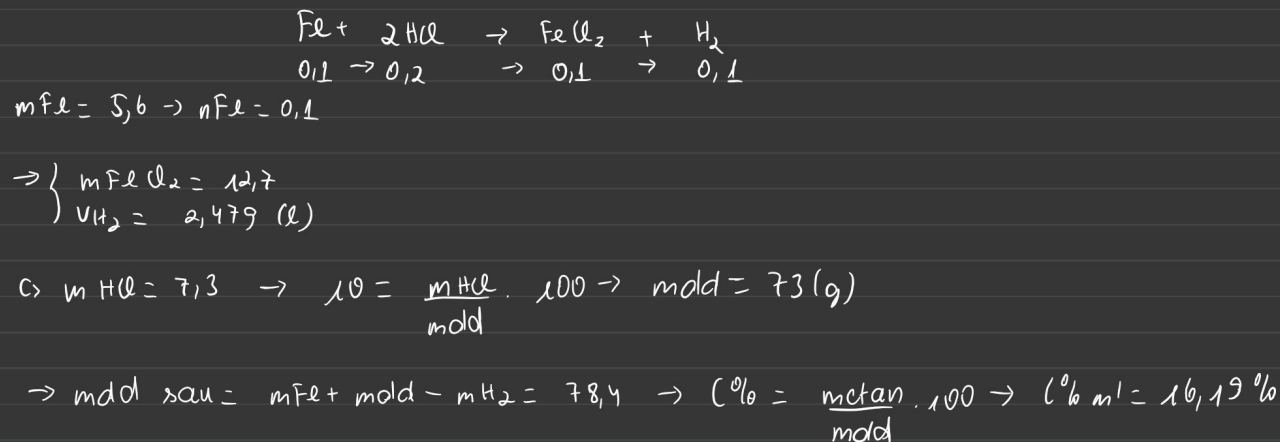 Fe + 2HCl → FeCl₂ + H₂
0,1 → 0,2 → 0,1 → 0,1
mFe = 5,6 → nFe = 0,1
→ { mFeCl₂ = 12,7
VH₂ = 2,479 (l)
c> mHCl = 7,3 → 10 = mHCl/mdd . 100 → mdd = 73(g)
→ mdd sau = mFe + mdd - mH₂ = 78,4 → C% = mctan/mdd . 100 → C% m' = 16,19%